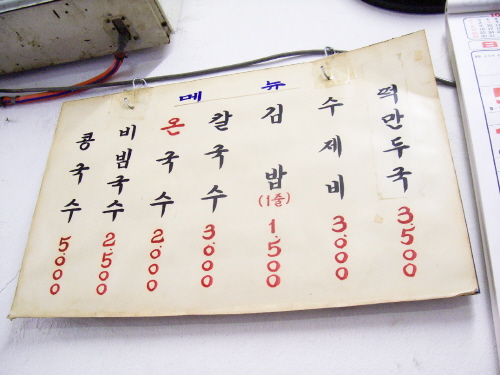 메뉴
콩국수 5.000
비빔국수 2.500
온국수 2.000
칼국수 3.000
김밥 (1줄) 1.500
수제비 3.000
떡만두국 3.500